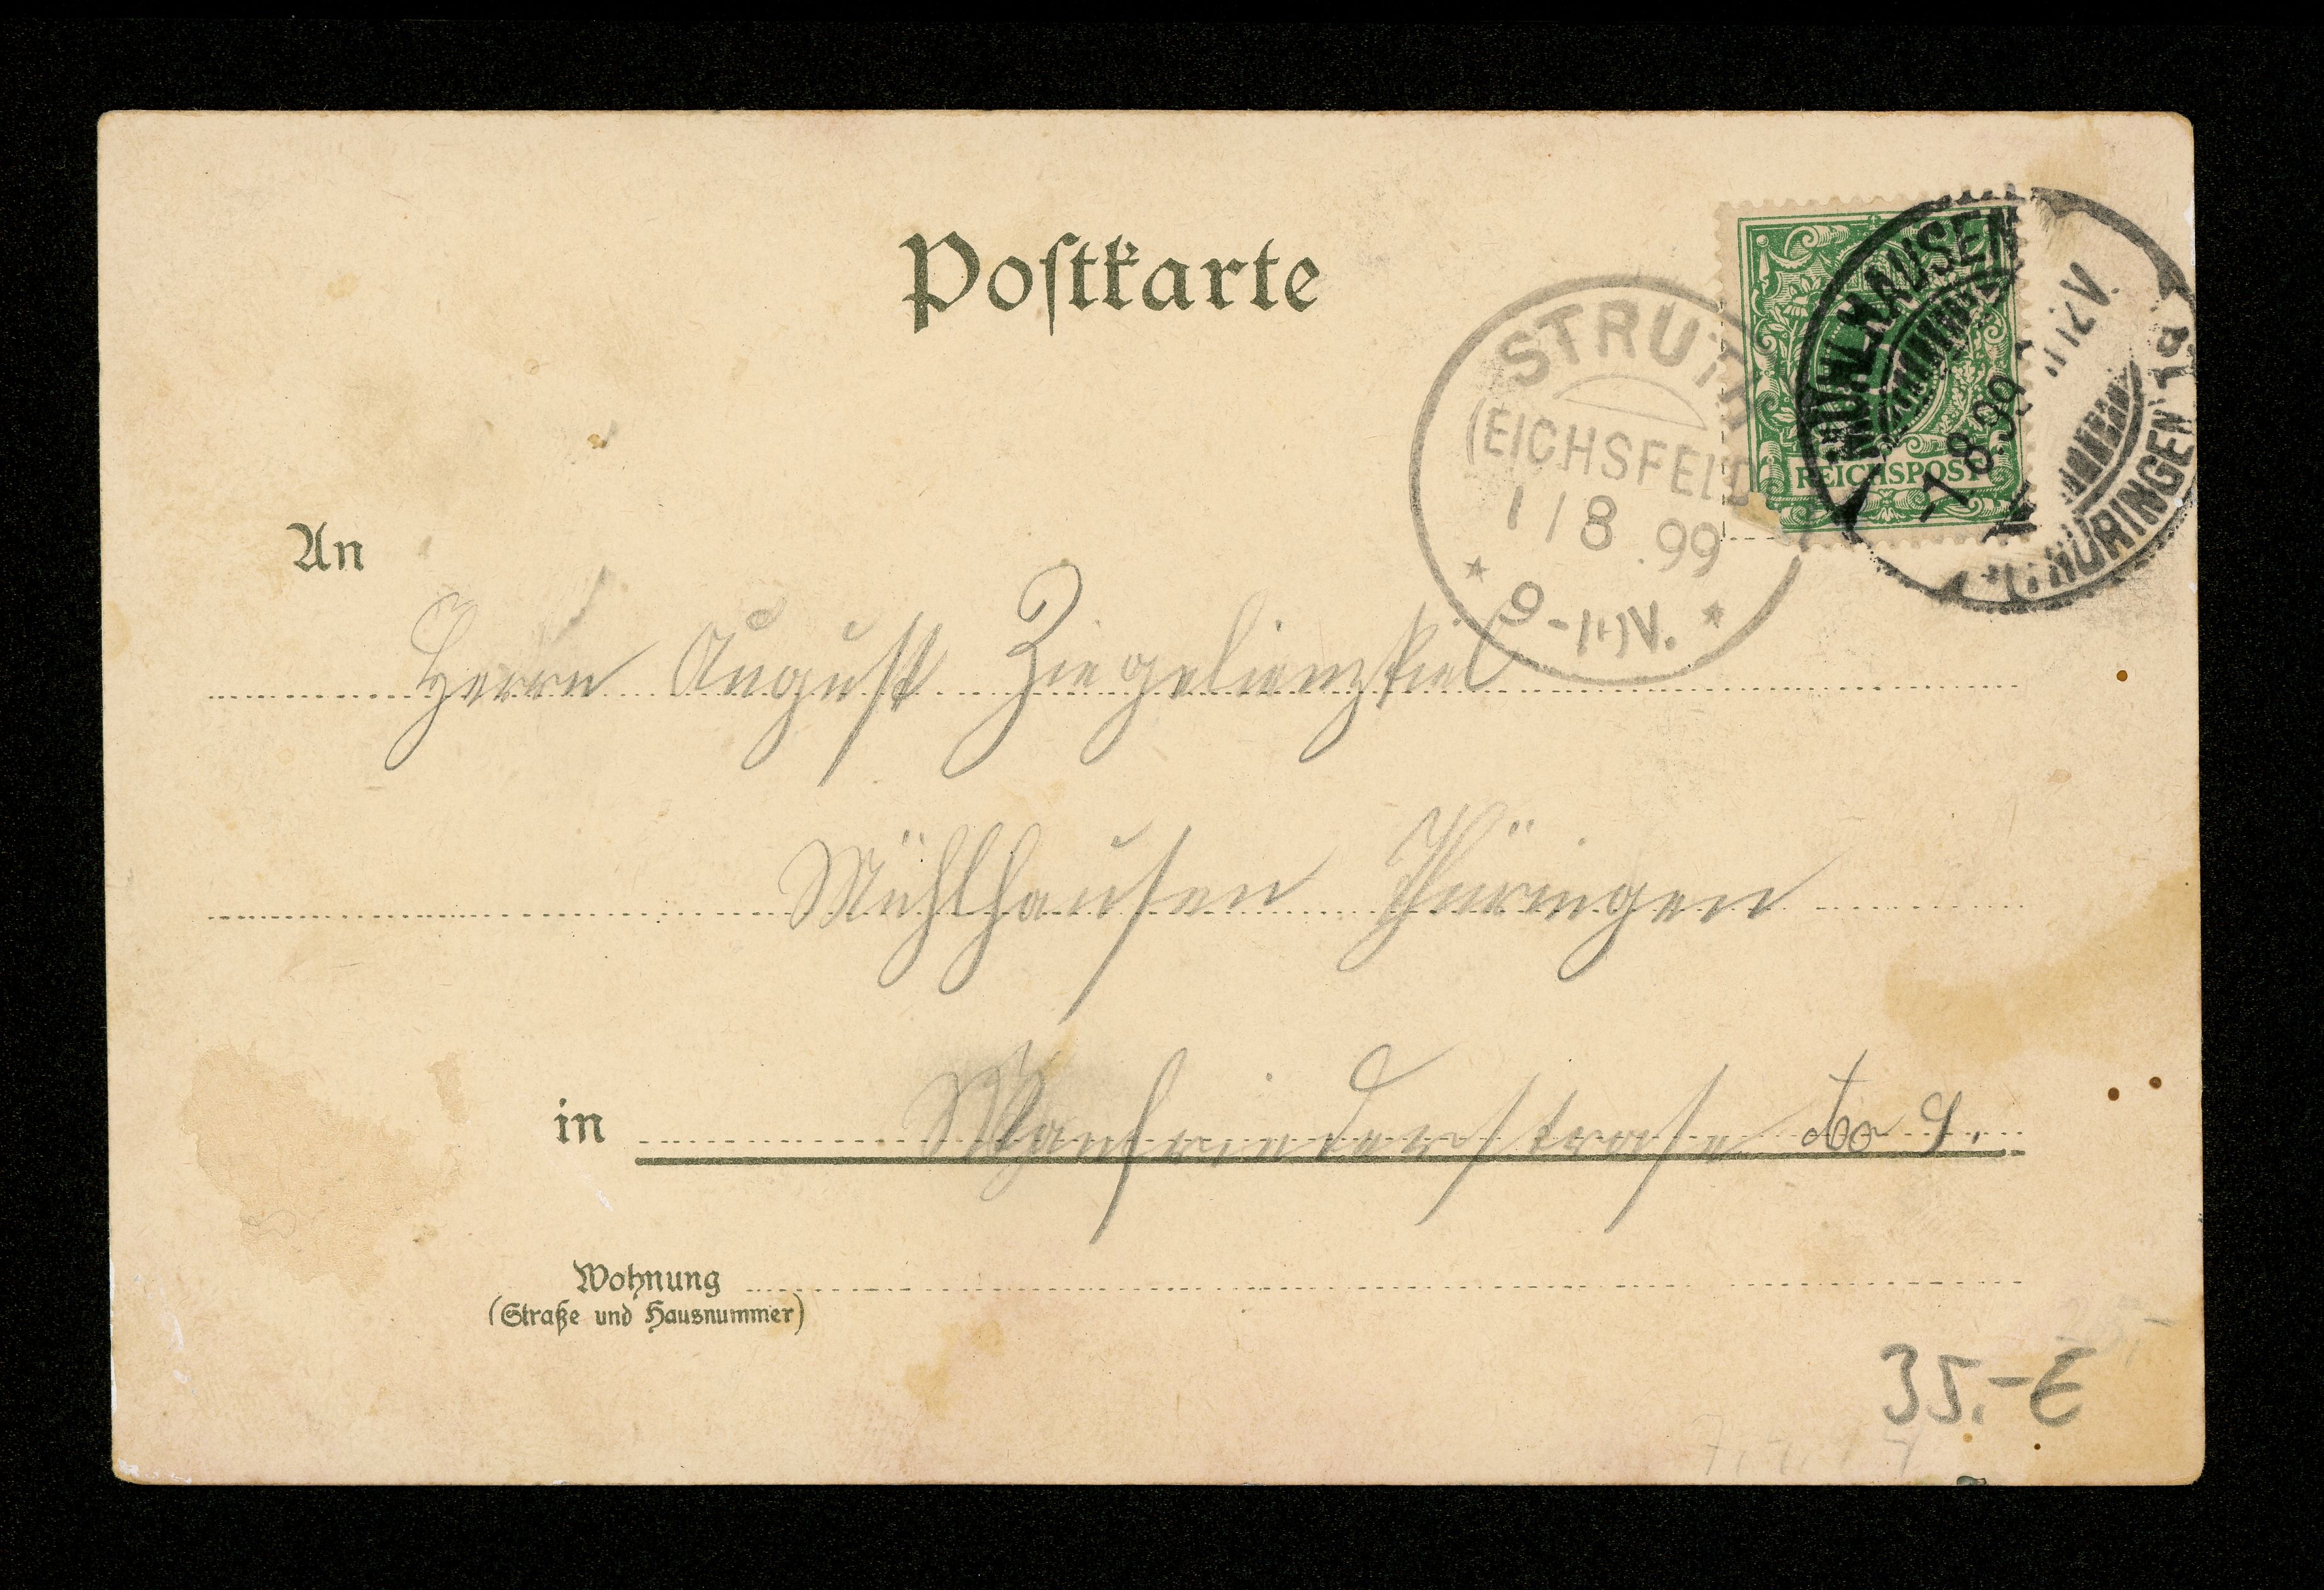 Postkarte
STRUTH
(EICHSFELD)
1/8.99
9-10V.
MÜHLHAUSEN
REICHSPOST
-1.8.99
THÜRINGEN
An
Herrn August
Mühlhausen Thüringen
in Wanfriederstrase No 9.
Wohnung
(Straße und Hausnummer)
35.-€